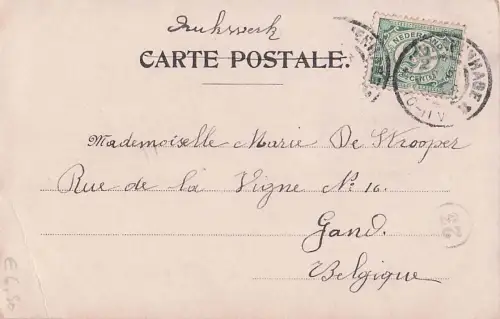 Drukwerk
CARTE POSTALE.
NEDERLAND
2½
CENT
Mademoiselle Marie De Krooper
Rue de la Vigne No 16.
Gand.
Belgique
€ 6,50